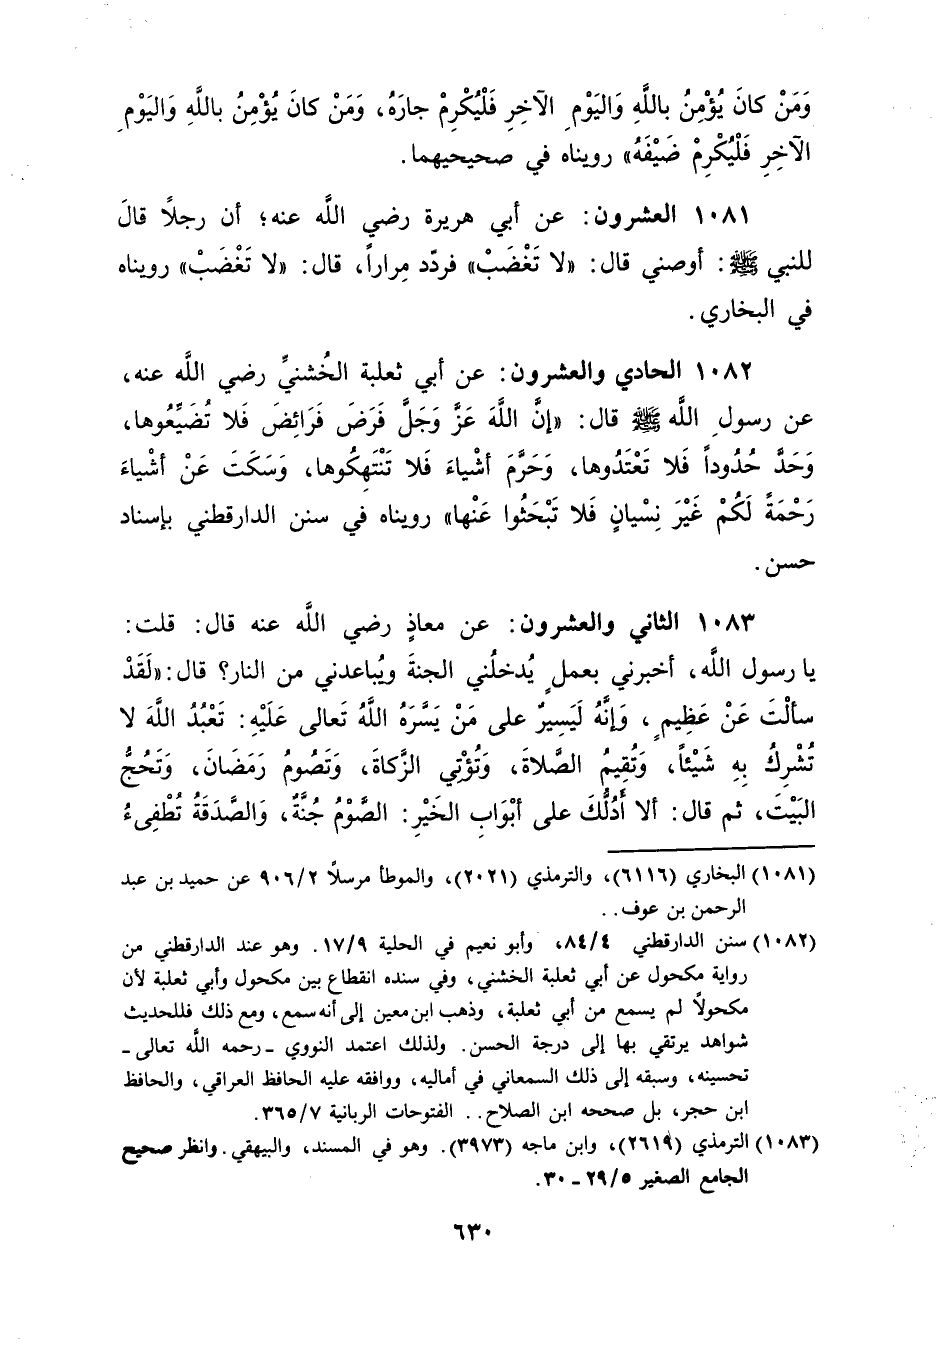 وَمَنْ كانَ يُؤْمِنُ باللَّهِ وَاليَوْمِ الآخِرِ فَلْيُكْرِمْ جارَهُ، وَمَنْ كانَ يُؤْمِنُ باللَّهِ وَاليَوْمِ
الآخِرِ فَلْيُكْرِمْ ضَيْفَهُ» رويناه في صحيحيهما.
١٠٨١ العشرون: عن أبي هريرة رضي اللَّه عنه؛ أن رجلاً قالَ
للنبي ﷺ: أوصني قال: «لا تَغْضَبْ» فردّد مِراراً، قال: «لا تَغْضَبْ» رويناه
في البخاري.
١٠٨٢ الحادي والعشرون: عن أبي ثعلبة الخُشنيِّ رضي اللَّه عنه،
عن رسولِ اللَّه ﷺ قال: «إنَّ اللَّهَ عَزَّ وَجَلَّ فَرَضَ فَرَائِضَ فَلا تُضَيِّعُوها،
وَحَدَّ حُدُوداً فَلا تَعْتَدُوها، وَحَرَّمَ أشْياءَ فَلا تَنْتَهِكُوها، وَسَكَتَ عَنْ أشْياءَ
رَحْمَةً لَكُمْ غَيْرَ نِسْيانٍ فَلا تَبْحَثُوا عَنْها» رويناه في سنن الدارقطني بإسناد
حسن.
١٠٨٣ الثاني والعشرون: عن معاذٍ رضي اللَّه عنه قال: قلت:
يا رسول اللَّه، أخبرني بعملٍ يُدخلُني الجنةَ ويُباعدني من النار؟ قال: «لَقَدْ
سألْتَ عَنْ عَظِيمٍ، وَإنَّهُ لَيَسِيرٌ على مَنْ يَسَّرَهُ اللَّهُ تَعالى عَلَيْهِ: تَعْبُدُ اللَّهَ لا
تُشْرِكُ بِهِ شَيْئاً، وَتُقِيمُ الصَّلاةَ، وَتُؤْتِي الزَّكاةَ، وَتَصُومُ رَمَضَانَ، وَتَحُجُّ
البَيْتَ، ثم قال: ألا أَدُلُّكَ على أبْوَابِ الخَيْرِ: الصَّوْمُ جُنَّةٌ، وَالصَّدَقَةُ تُطْفِىءُ
(١٠٨١) البخاري (٦١١٦)، والترمذي (٢٠٢١)، والموطأ مرسلاً ٩٠٦/٢ عن حميد بن عبد
الرحمن بن عوف..
(١٠٨٢) سنن الدارقطني ٨٤/٤، وأبو نعيم في الحلية ١٧/٩. وهو عند الدارقطني من
رواية مكحول عن أبي ثعلبة الخشني، وفي سنده انقطاع بين مكحول وأبي ثعلبة لأن
مكحولاً لم يسمع من أبي ثعلبة، وذهب ابن معين إلى أنه سمع، ومع ذلك فللحديث
شواهد يرتقي بها إلى درجة الحسن. ولذلك اعتمد النووي ـ رحمه اللَّه تعالى ـ
تحسينه، وسبقه إلى ذلك السمعاني في أماليه، ووافقه عليه الحافظ العراقي، والحافظ
ابن حجر، بل صححه ابن الصلاح.. الفتوحات الربانية ٣٦٥/٧.
(١٠٨٣) الترمذي (٢٦١٩)، وابن ماجه (٣٩٧٣). وهو في المسند، والبيهقي. وانظر صحيح
الجامع الصغير ٢٩/٥ ـ ٣٠.
٦٣٠